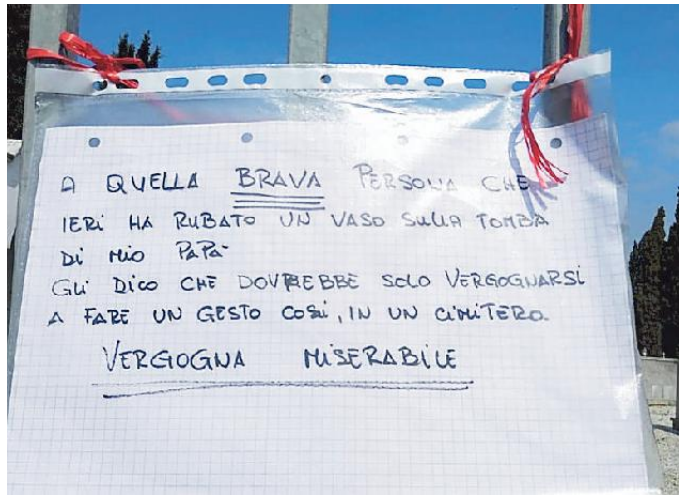 A QUELLA BRAVA PERSONA CHE
IERI HA RUBATO UN VASO SULLA TOMBA
DI MIO PAPÀ
GLI DICO CHE DOVREBBE SOLO VERGOGNARSI
A FARE UN GESTO COSÌ, IN UN CIMITERO.
VERGOGNA MISERABILE